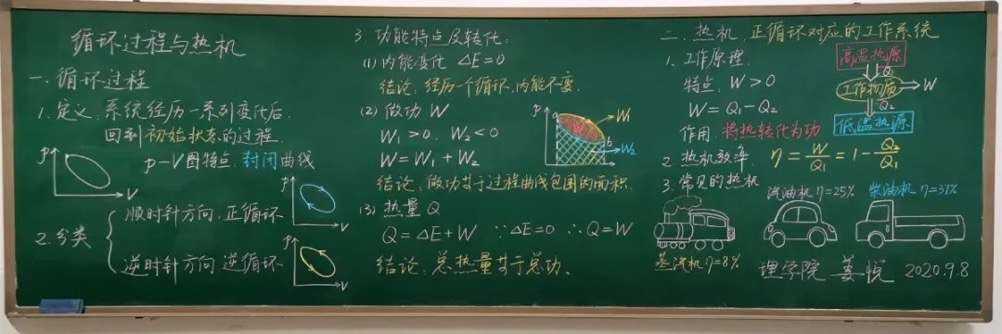 循环过程与热机
一、循环过程
1. 定义: 系统经历一系列变化后,
回到初始状态的过程.
p
V
p-V图特点: 封闭曲线
2. 分类
顺时针方向: 正循环
p
V
逆时针方向: 逆循环
p
V
3. 功能特点及转化:
(1) 内能变化 ΔE=0
结论: 经历一个循环,内能不变.
(2) 做功 W
W₁>0. W₂<0
W=W₁+W₂
p
W₁
a
b
W₂
结论: 做功等于过程曲线包围的面积.
(3) 热量 Q
Q=ΔE+W ∵ΔE=0 ∴Q=W
结论: 总热量等于总功.
二、热机: 正循环对应的工作系统
1. 工作原理:
特点: W>0
W=Q₁-Q₂
作用: 将热转化为功
高温热源
Q₁
工作物质
W
Q₂
低温热源
2. 热机效率: η=W/Q₁=1-Q₂/Q₁
3. 常见的热机
蒸汽机 η=8%
汽油机 η=25%
柴油机 η=37%
理学院 姜悦 2020.9.8